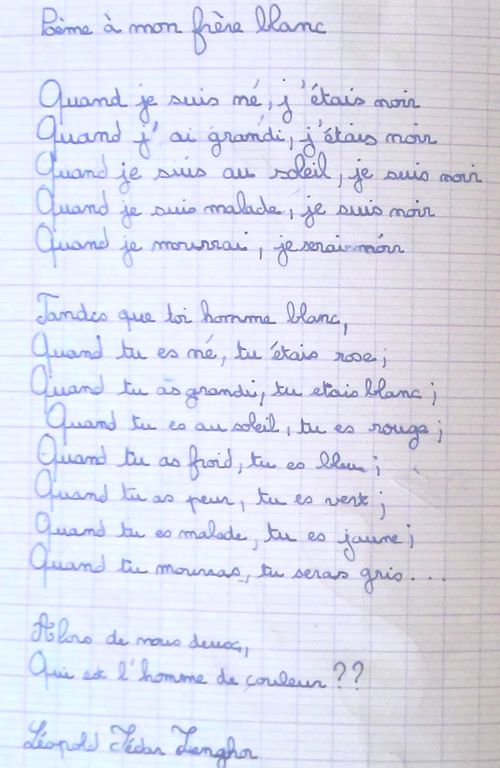 Poème à mon frère blanc
Quand je suis né, j'étais noir
Quand j'ai grandi, j'étais noir
Quand je suis au soleil, je suis noir
Quand je suis malade, je suis noir
Quand je mourrai, je serai noir
Tandis que toi homme blanc,
Quand tu es né, tu étais rose;
Quand tu as grandi, tu etais blanc;
Quand tu es au soleil, tu es rouge;
Quand tu as froid, tu es bleu;
Quand tu as peur, tu es vert;
Quand tu es malade, tu es jaune;
Quand tu mourras, tu seras gris...
Alors de nous deux,
Qui est l'homme de couleur ??
Léopold Sédar Senghor